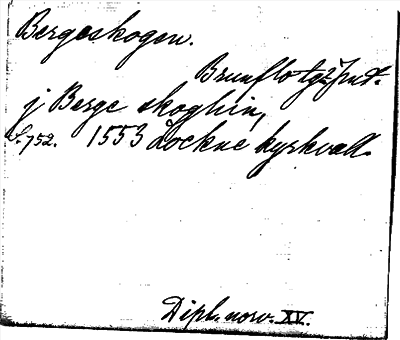 Bergeskogen.
Brunflo tg, Jmtl.
j Berge skoghin,
S. 752. 1553 Lockne kyrkvall.
Dipl. norv. XV.